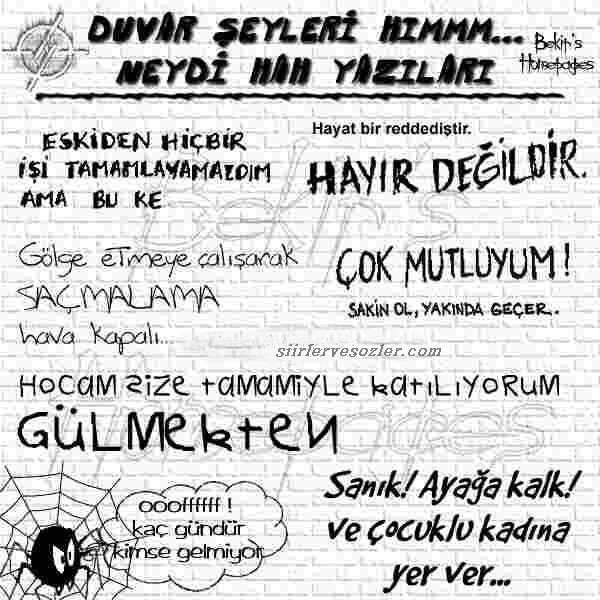 DUVAR ŞEYLERİ HIMMM...
NEYDİ HAH YAZILARI
Bekir's
Homepages
ESKİDEN HİÇBİR
İŞİ TAMAMLAYAMAZDIM
AMA BU KE
Hayat bir reddediştir.
HAYIR DEĞİLDİR.
Gölge etmeye çalışarak
SAÇMALAMA
hava kapalı...
ÇOK MUTLUYUM!
SAKİN OL, YAKINDA GEÇER.
siirlervesozler.com
HOCAM SİZE TAMAMİYLE KATILIYORUM
GÜLMEKTEN
ooofffffff !
kaç gündür
kimse gelmiyor
Sanık! Ayağa kalk!
Ve çocuklu kadına
yer ver...
Bekir's
Homepages